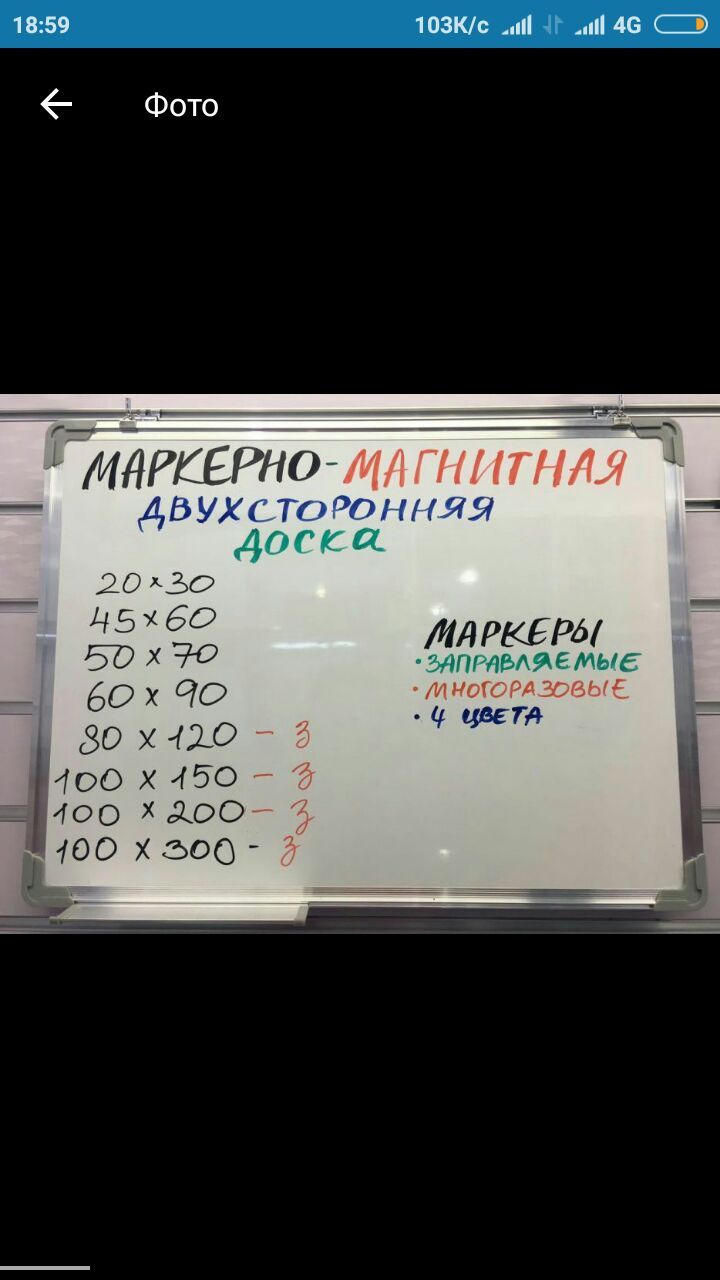 18:59 103К/с 4G
Фото
МАРКЕРНО-МАГНИТНАЯ
ДВУХСТОРОННЯЯ
ДОСКА
20×30
45×60
50×70
60×90
80×120 – з
100×150 – з
100×200 – з
100×300 - з
МАРКЕРЫ
·ЗАПРАВЛЯЕМЫЕ
·МНОГОРАЗОВЫЕ
·4 ЦВЕТА